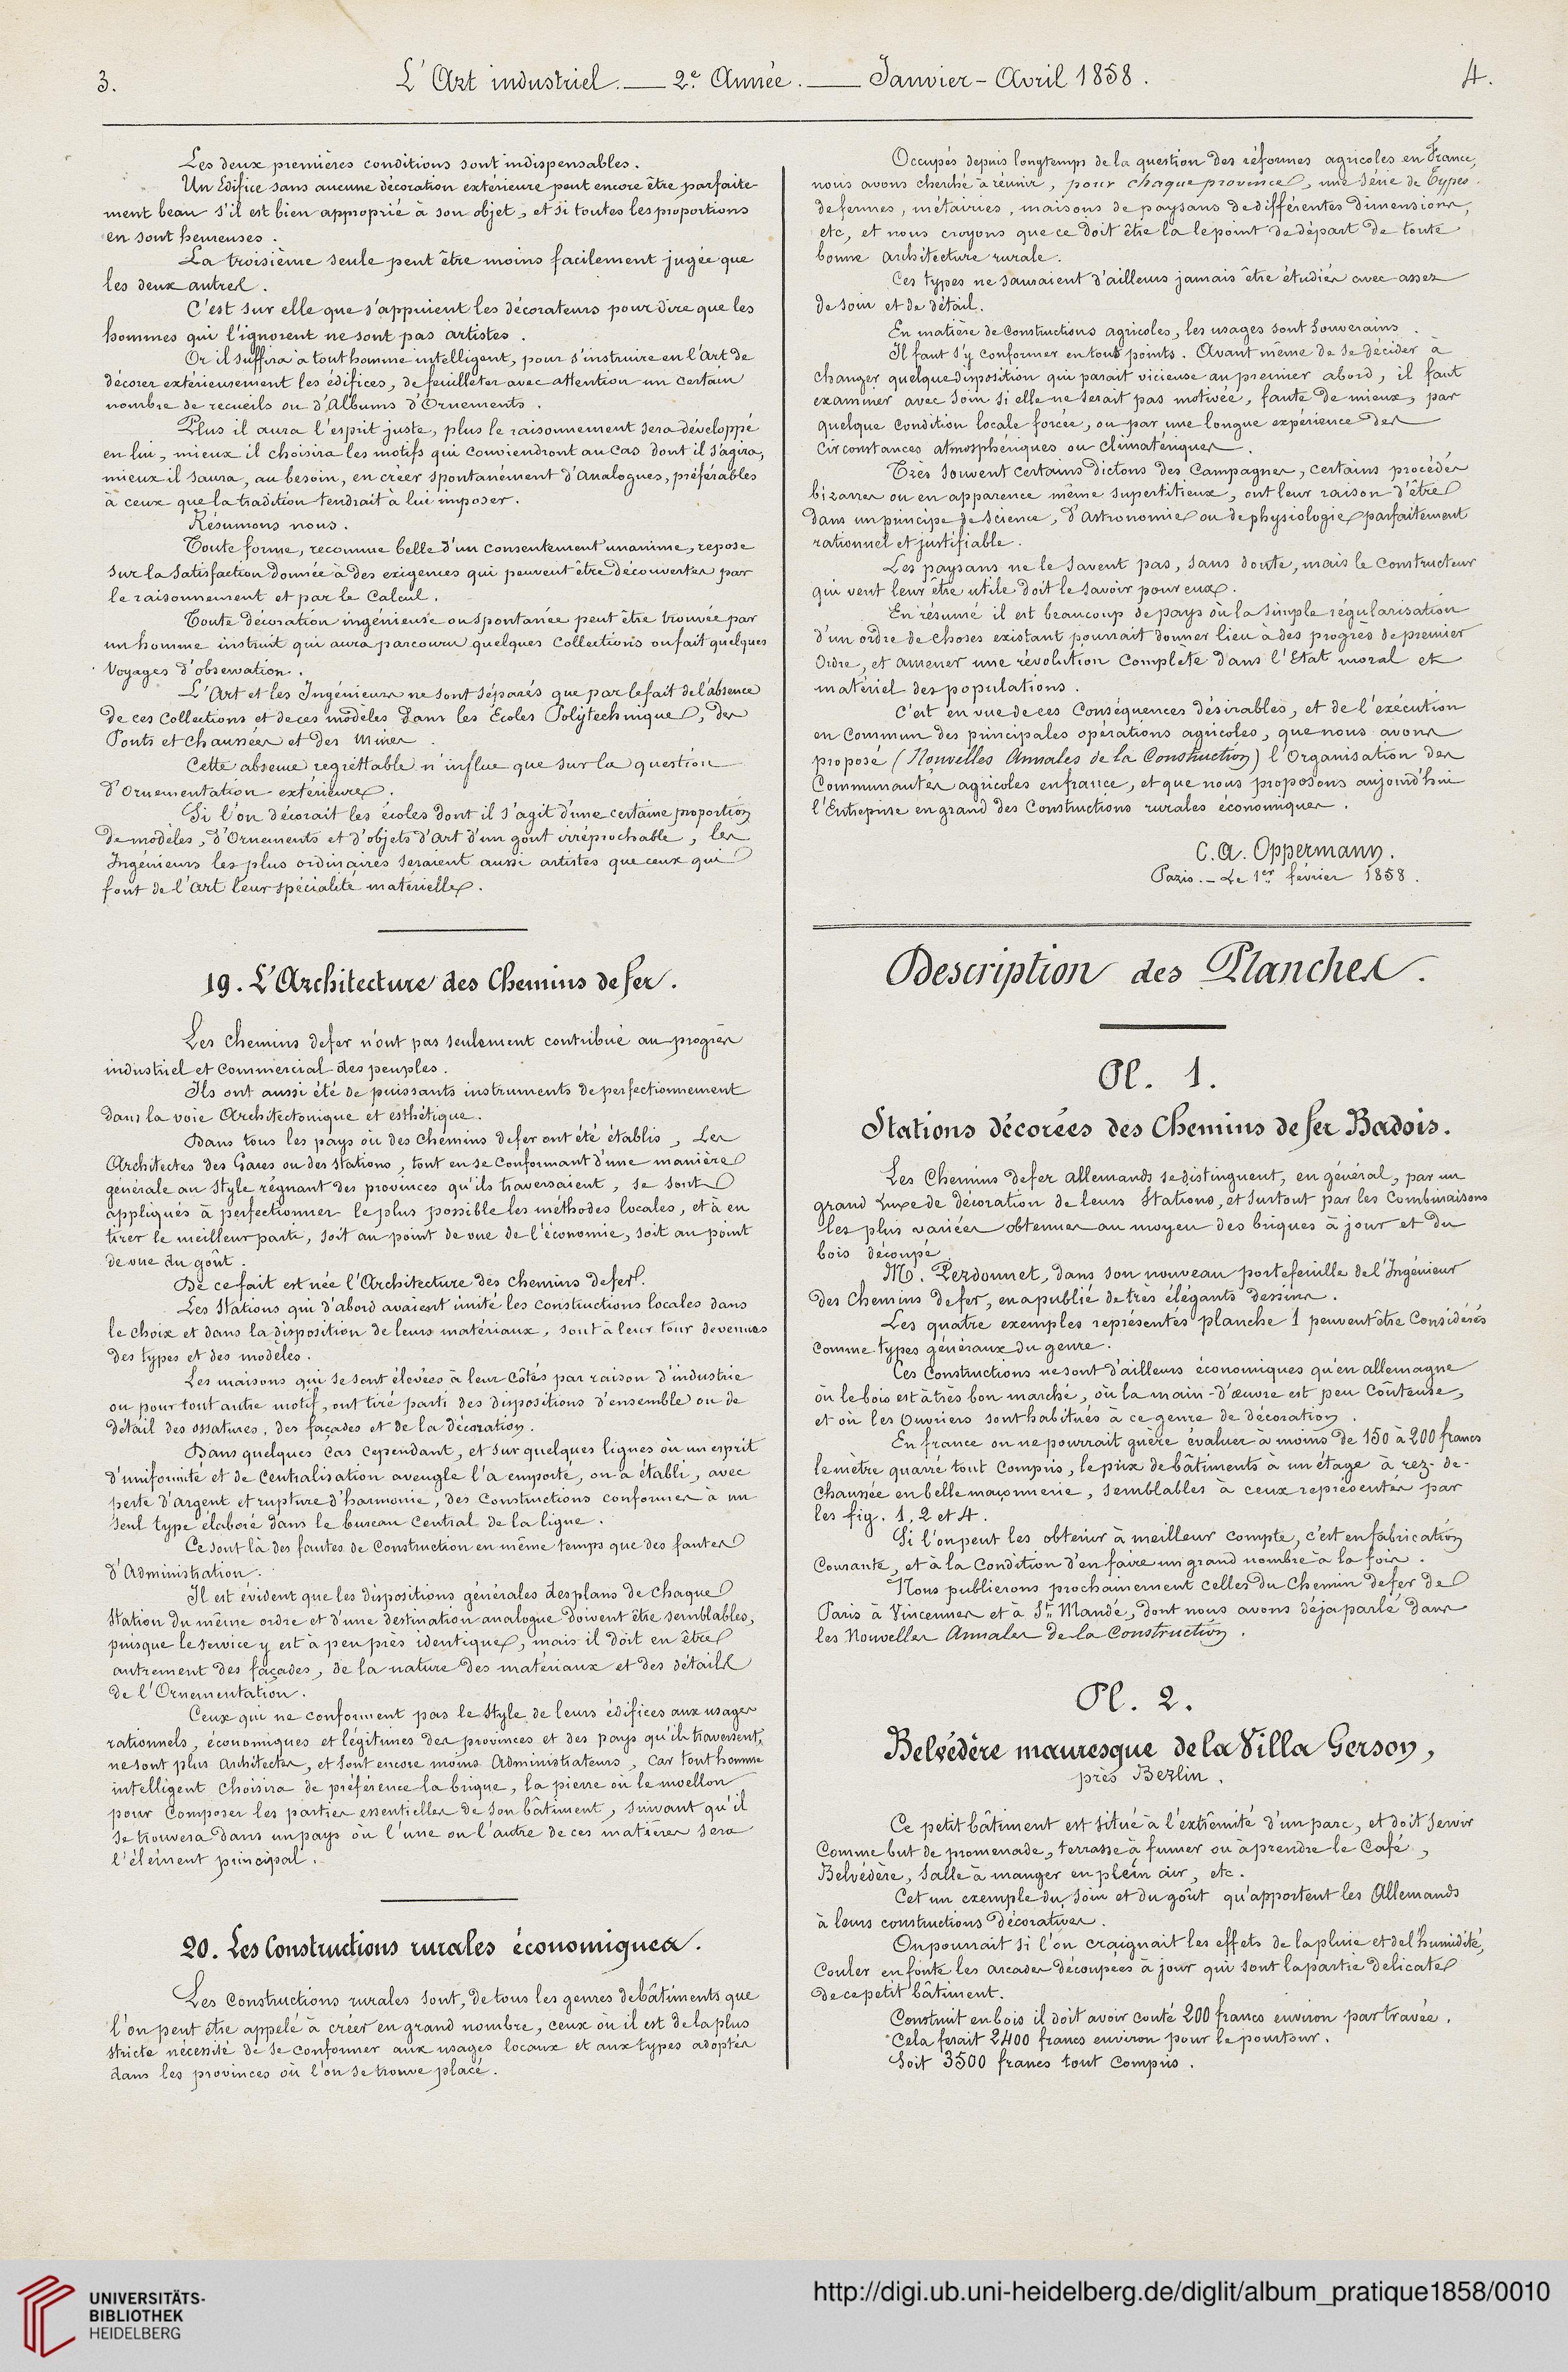 3.
L'Art industriel. — 2e. Année. — Janvier - Avril 1858.
4.
Les deux premières conditions sont indispensables.
Un Edifice sans aucune décoration extérieure peut encore être parfaite-
ment beau s'il est bien approprié à son objet, et si toutes les proportions
en sont heureuses.
La troisième seule peut être moins facilement jugée que
les deux autres.
C'est sur elle que s'appuient les décorateurs pour dire que les
hommes qui l'ignorent ne sont pas artistes.
Or il suffira à tout homme intelligent, pour s'instruire en l'Art de
décorer extérieurement les édifices, de feuilleter avec attention un certain
nombre de recueils ou d'Albums d'Ornements.
Plus il aura l'esprit juste, plus le raisonnement sera développé
en lui, mieux il choisira les motifs qui conviendront au Cas dont il s'agira,
mieux il saura, au besoin, en créer spontanément d'analogues, préférables
à ceux que la tradition tendrait à lui imposer.
Résumons nous.
Toute forme, reconnue belle d'un consentement unanime, repose
sur la Satisfaction donnée à des exigences qui peuvent être découvertes par
le raisonnement et par le Calcul.
Toute décoration ingénieuse ou spontanée peut être trouvée par
un homme instruit qui aura parcouru quelques Collections ou fait quelques
Voyages d'observation.
L'Art et les Ingénieurs ne sont séparés que par le fait de l'absence
de ces Collections et de ces modèles dans les Écoles Polytechniques, des
Ponts et Chaussées et des Mines.
Cette absence regrettable n'influe que sur la question
d'Ornementation extérieure.
Si l'on décorait les écoles dont il s'agit d'une certaine proportion
de modèles, d'Ornements et d'objets d'Art d'un goût irréprochable, les
Ingénieurs les plus ordinaires seraient aussi artistes que ceux qui
font de l'art leur spécialité matérielle.
19. L'Architecture des Chemins de fer.
Les Chemins de fer n'ont pas seulement contribué au progrès
industriel et Commercial des peuples.
Ils ont aussi été de puissants instruments de perfectionnement
dans la voie Architectonique et esthétique.
Dans tous les pays où des Chemins de fer ont été établis, Les
Architectes des Gares ou des Stations, tout en se Conformant d'une manière
générale au Style régnant des provinces qu'ils traversaient, se sont
appliqués à perfectionner le plus possible les méthodes locales, et à en
tirer le meilleur parti, soit au point de vue de l'économie, soit au point
de vue du goût.
De ce fait est née l'Architecture des Chemins de fer.
Les Stations qui d'abord avaient imité les constructions locales dans
le choix et dans la disposition de leurs matériaux, sont à leur tour devenues
des types et des modèles.
Les maisons qui se sont élevées à leur Côtés par raison d'industrie
ou pour tout autre motif, ont tiré parti des dispositions d'ensemble ou de
détail des ossatures, des façades et de la décoration.
Dans quelques Cas Cependant, et sur quelques lignes où un esprit
d'uniformité et de Centralisation aveugle l'a emporté, on a établi, avec
perte d'argent et rupture d'harmonie, des Constructions conformes à un
seul type élaboré dans le bureau Central de la ligne.
Ce sont là des fautes de Construction en même temps que des fautes
d'Administration.
Il est évident que les dispositions générales des plans de Chaque
Station du même ordre et d'une destination analogue doivent être semblables,
puisque le service y est à peu près identique, mais il doit en être
autrement des façades, de la nature des matériaux et des détails
de l'Ornementation.
Ceux qui ne conforment pas le Style de leurs édifices aux usages
rationnels, économiques et légitimes des provinces et des pays qu'ils traversent,
ne sont plus Architectes, et sont encore moins Administrateurs, Car tout homme
intelligent Choisira de préférence la brique, la pierre où le moellon
pour Composer les parties essentielles de son bâtiment, suivant qu'il
se trouvera dans un pays où l'une ou l'autre de ces matières sera
l'élément principal.
20. Les Constructions rurales économiques.
Les Constructions rurales sont, de tous les genres de bâtiments que
l'on peut être appelé à créer en grand nombre, ceux où il est de la plus
stricte nécessité de se conformer aux usages locaux et aux types adoptés
dans les provinces où l'on se trouve placé.
Occupés depuis longtemps de la question des réformes agricoles en France,
nous avons cherché à réunir, pour chaque province, une série de Types
de fermes, métairies, maisons de paysans de différentes dimensions,
etc, et nous croyons que ce doit être là le point de départ de toute
bonne Architecture rurale.
Ces types ne sauraient d'ailleurs jamais être étudiés avec assez
de soin et de détail.
En matière de Constructions agricoles, les usages sont Souverains.
Il faut s'y conformer en tous points. Avant même de se décider à
Changer quelque disposition qui paraît vicieuse au premier abord, il faut
examiner avec Soin si elle ne serait pas motivée, faute de mieux, par
quelque Condition locale forcée, ou par une longue expérience des
Circonstances atmosphériques ou Climatériques.
Très souvent Certains dictons des Campagnes, certains procédés
bizarres ou en apparence même superstitieux, ont leur raison d'être
dans un principe de science, d'astronomie ou de physiologie parfaitement
rationnel et justifiable.
Les paysans ne le savent pas, sans doute, mais le Constructeur
qui veut leur être utile doit le savoir pour eux.
En résumé il est beaucoup de pays où la simple régularisation
d'un ordre de choses existant pourrait donner lieu à des progrès de premier
Ordre, et amener une révolution Complète dans l'Etat moral et
matériel des populations.
C'est en vue de ces Conséquences désirables, et de l'exécution
en Commun des principales opérations agricoles, que nous avons
proposé (Nouvelles Annales de la Construction) l'Organisation des
Communautés agricoles en france, et que nous proposons aujourd'hui
l'Entreprise en grand des Constructions rurales économiques.
C. A. Oppermann.
Paris. - Le 1er février 1858.
Description des Planches.
Pl. 1.
Stations décorées des Chemins de fer Badois.
Les Chemins de fer Allemands se distinguent, en général, par un
grand Luxe de décoration de leurs Stations, et surtout par les Combinaisons
les plus variées obtenues au moyen des briques à jour et du
bois découpé.
Mr. Perdonnet, dans son nouveau portefeuille de l'Ingénieur
des Chemins de fer, en a publié de très élégants dessins.
Les quatre exemples représentés planche 1 peuvent être Considérés
Comme types généraux du genre.
Ces Constructions ne sont d'ailleurs économiques qu'en allemagne
où le bois est à très bon marché, où la main-d'œuvre est peu Coûteuse,
et où les Ouvriers sont habitués à ce genre de décoration.
En france on ne pourrait guère évaluer à moins de 150 à 200 francs
le mètre quarré tout Compris, le prix de bâtiments à un étage à rez-de-
Chaussée en belle maçonnerie, semblables à ceux représentés par
les fig. 1, 2 et 4.
Si l'on peut les obtenir à meilleur compte, c'est en fabrication
Courante, et à la Condition d'en faire un grand nombre à la fois.
Nous publierons prochainement celles du Chemin de fer de
Paris à Vincennes et à St. Mandé, dont nous avons déja parlé dans
les Nouvelles Annales de la Construction.
Pl. 2.
Belvédère mauresque de la Villa Gerson,
près Berlin.
Ce petit bâtiment est situé à l'extrêmité d'un parc, et doit servir
Comme but de promenade, terrasse à fumer ou à prendre le Café,
Belvédère, Salle à manger en plein air, etc.
Cet un exemple du soin et du goût qu'apportent les Allemands
à leurs constructions décoratives.
On pourrait si l'on craignait les effets de la pluie et de l'humidité,
Couler en fonte les arcades découpées à jour qui sont la partie delicate
de ce petit bâtiment.
Construit en bois il doit avoir couté 200 francs environ par travée.
Cela ferait 2400 francs environ pour le pourtour.
Soit 3500 francs tout Compris.
UNIVERSITÄTS-
BIBLIOTHEK
HEIDELBERG
http://digi.ub.uni-heidelberg.de/diglit/album_pratique1858/0010